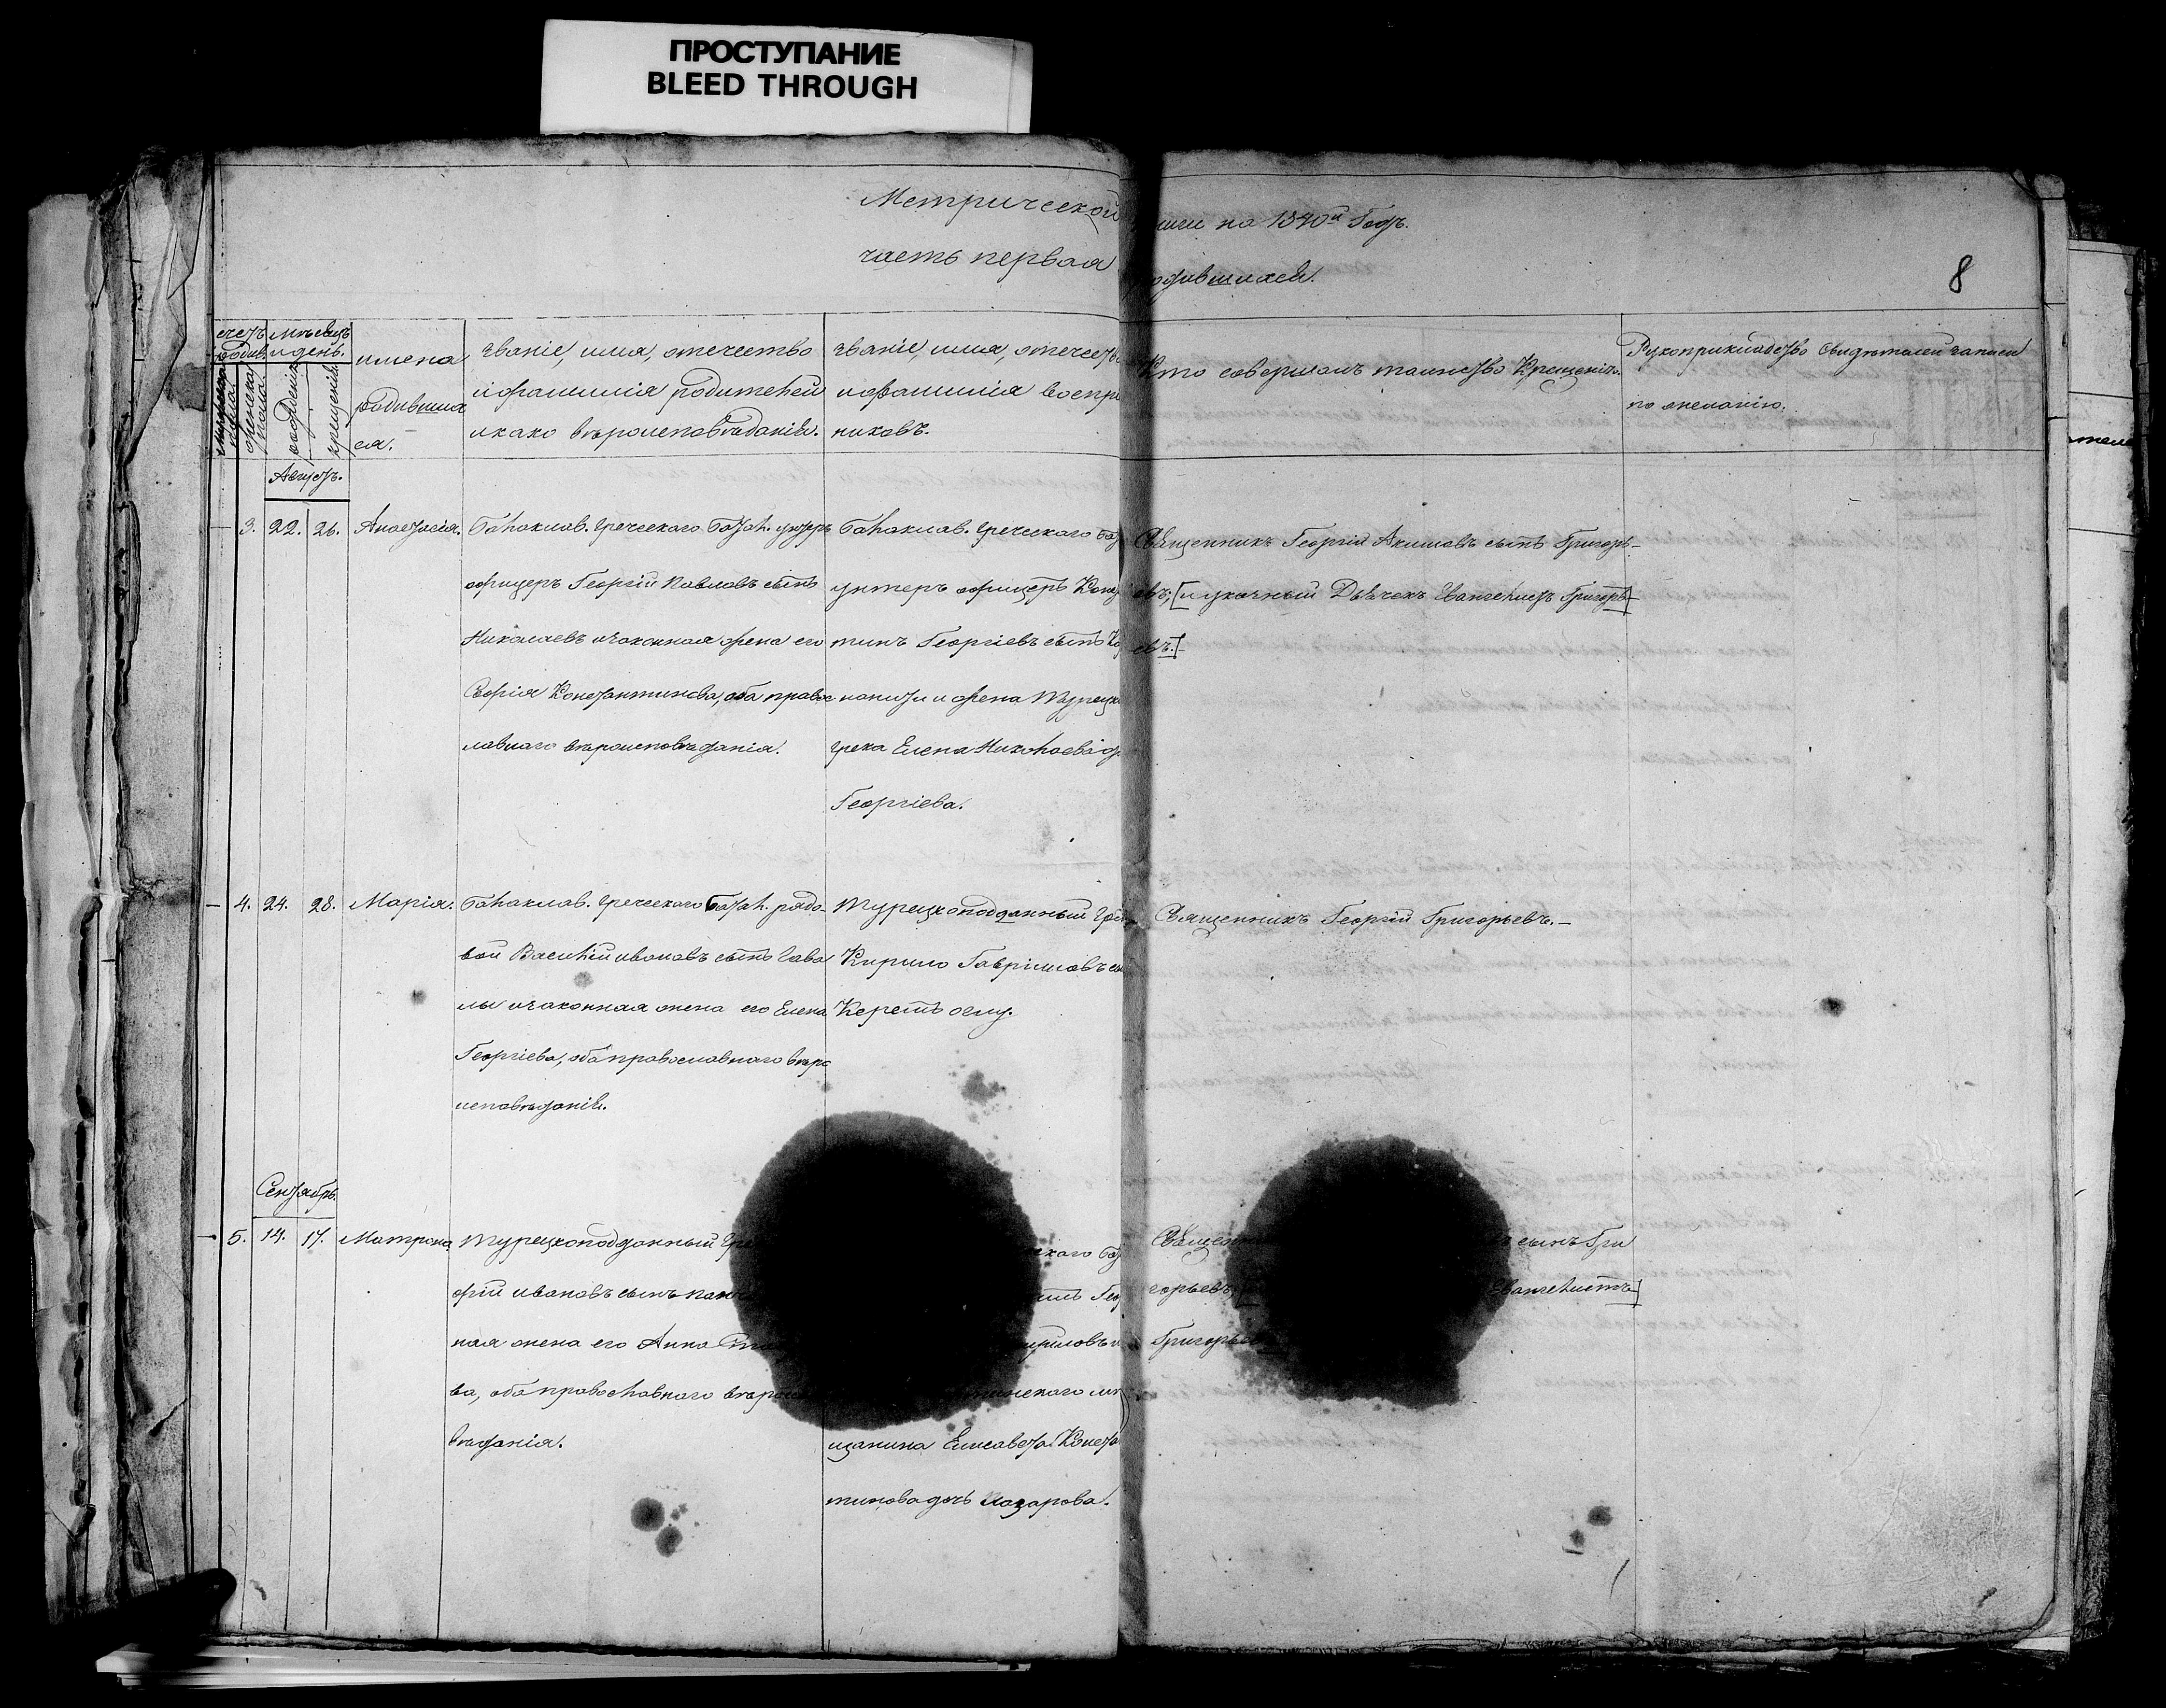 ПРОСТУПАНИЕ
BLEED THROUGH
Метрической
ниги на 1840й Годъ.
часть первая
родившихся.
8
счетъ родив.
мѣсяцъ и день.
женска пола.
рожденія
крещенія.
имена родившихся.
Званіе, имя, отечество
и фамилія родителей
и како вѣроисповѣданія.
Званіе, имя, отечество
и фамилія воспр
никовъ.
Кто совершалъ таинство Крещенія.
Рукоприкладство свидѣтелей записи
по желанію.
Августъ.
3. 22. 26. Анастасія.
балаклав. греческаго батал. унтеръ
офицеръ Георгій Павловъ сынъ
Николаевъ и законная жена его
Софія Константинова, оба правос
лавнаго вѣроисповѣданія.
балаклав. греческаго ба
унтеръ офицеръ Конс
тинъ Георгіевъ сынъ
и жена Турецко
грека Елена Николаева д
Георгіева.
Священникъ Георгій Акимовъ сынъ Григорь-
евъ; [и указный Дьячекъ Евангелистъ Григорь-
евъ.]
4. 24. 28. Марія.
балаклав. греческаго батал. рядо-
вой Василій ивановъ сынъ
лы и законная жена его Елена
Георгіева, оба православнаго вѣро
исповѣданія.
Турецкоподданный Гре
Кирило Гавриловъ сы
оглу.
Священникъ Георгій Григорьевъ.-
Сентябрь.
5. 14. 17. Матрона
Турецкоподданный Гре
фій ивановъ сынъ
ная жена его Анна
ва, оба православнаго вѣрои
вѣданія.
скаго ба
Гео
риловъ и
инскаго мѣ
щанина Елисавета Конста
тинова дочь Назарова.
Священ
сынъ Гри
горьевъ; [
Евангелистъ]
Григорьев